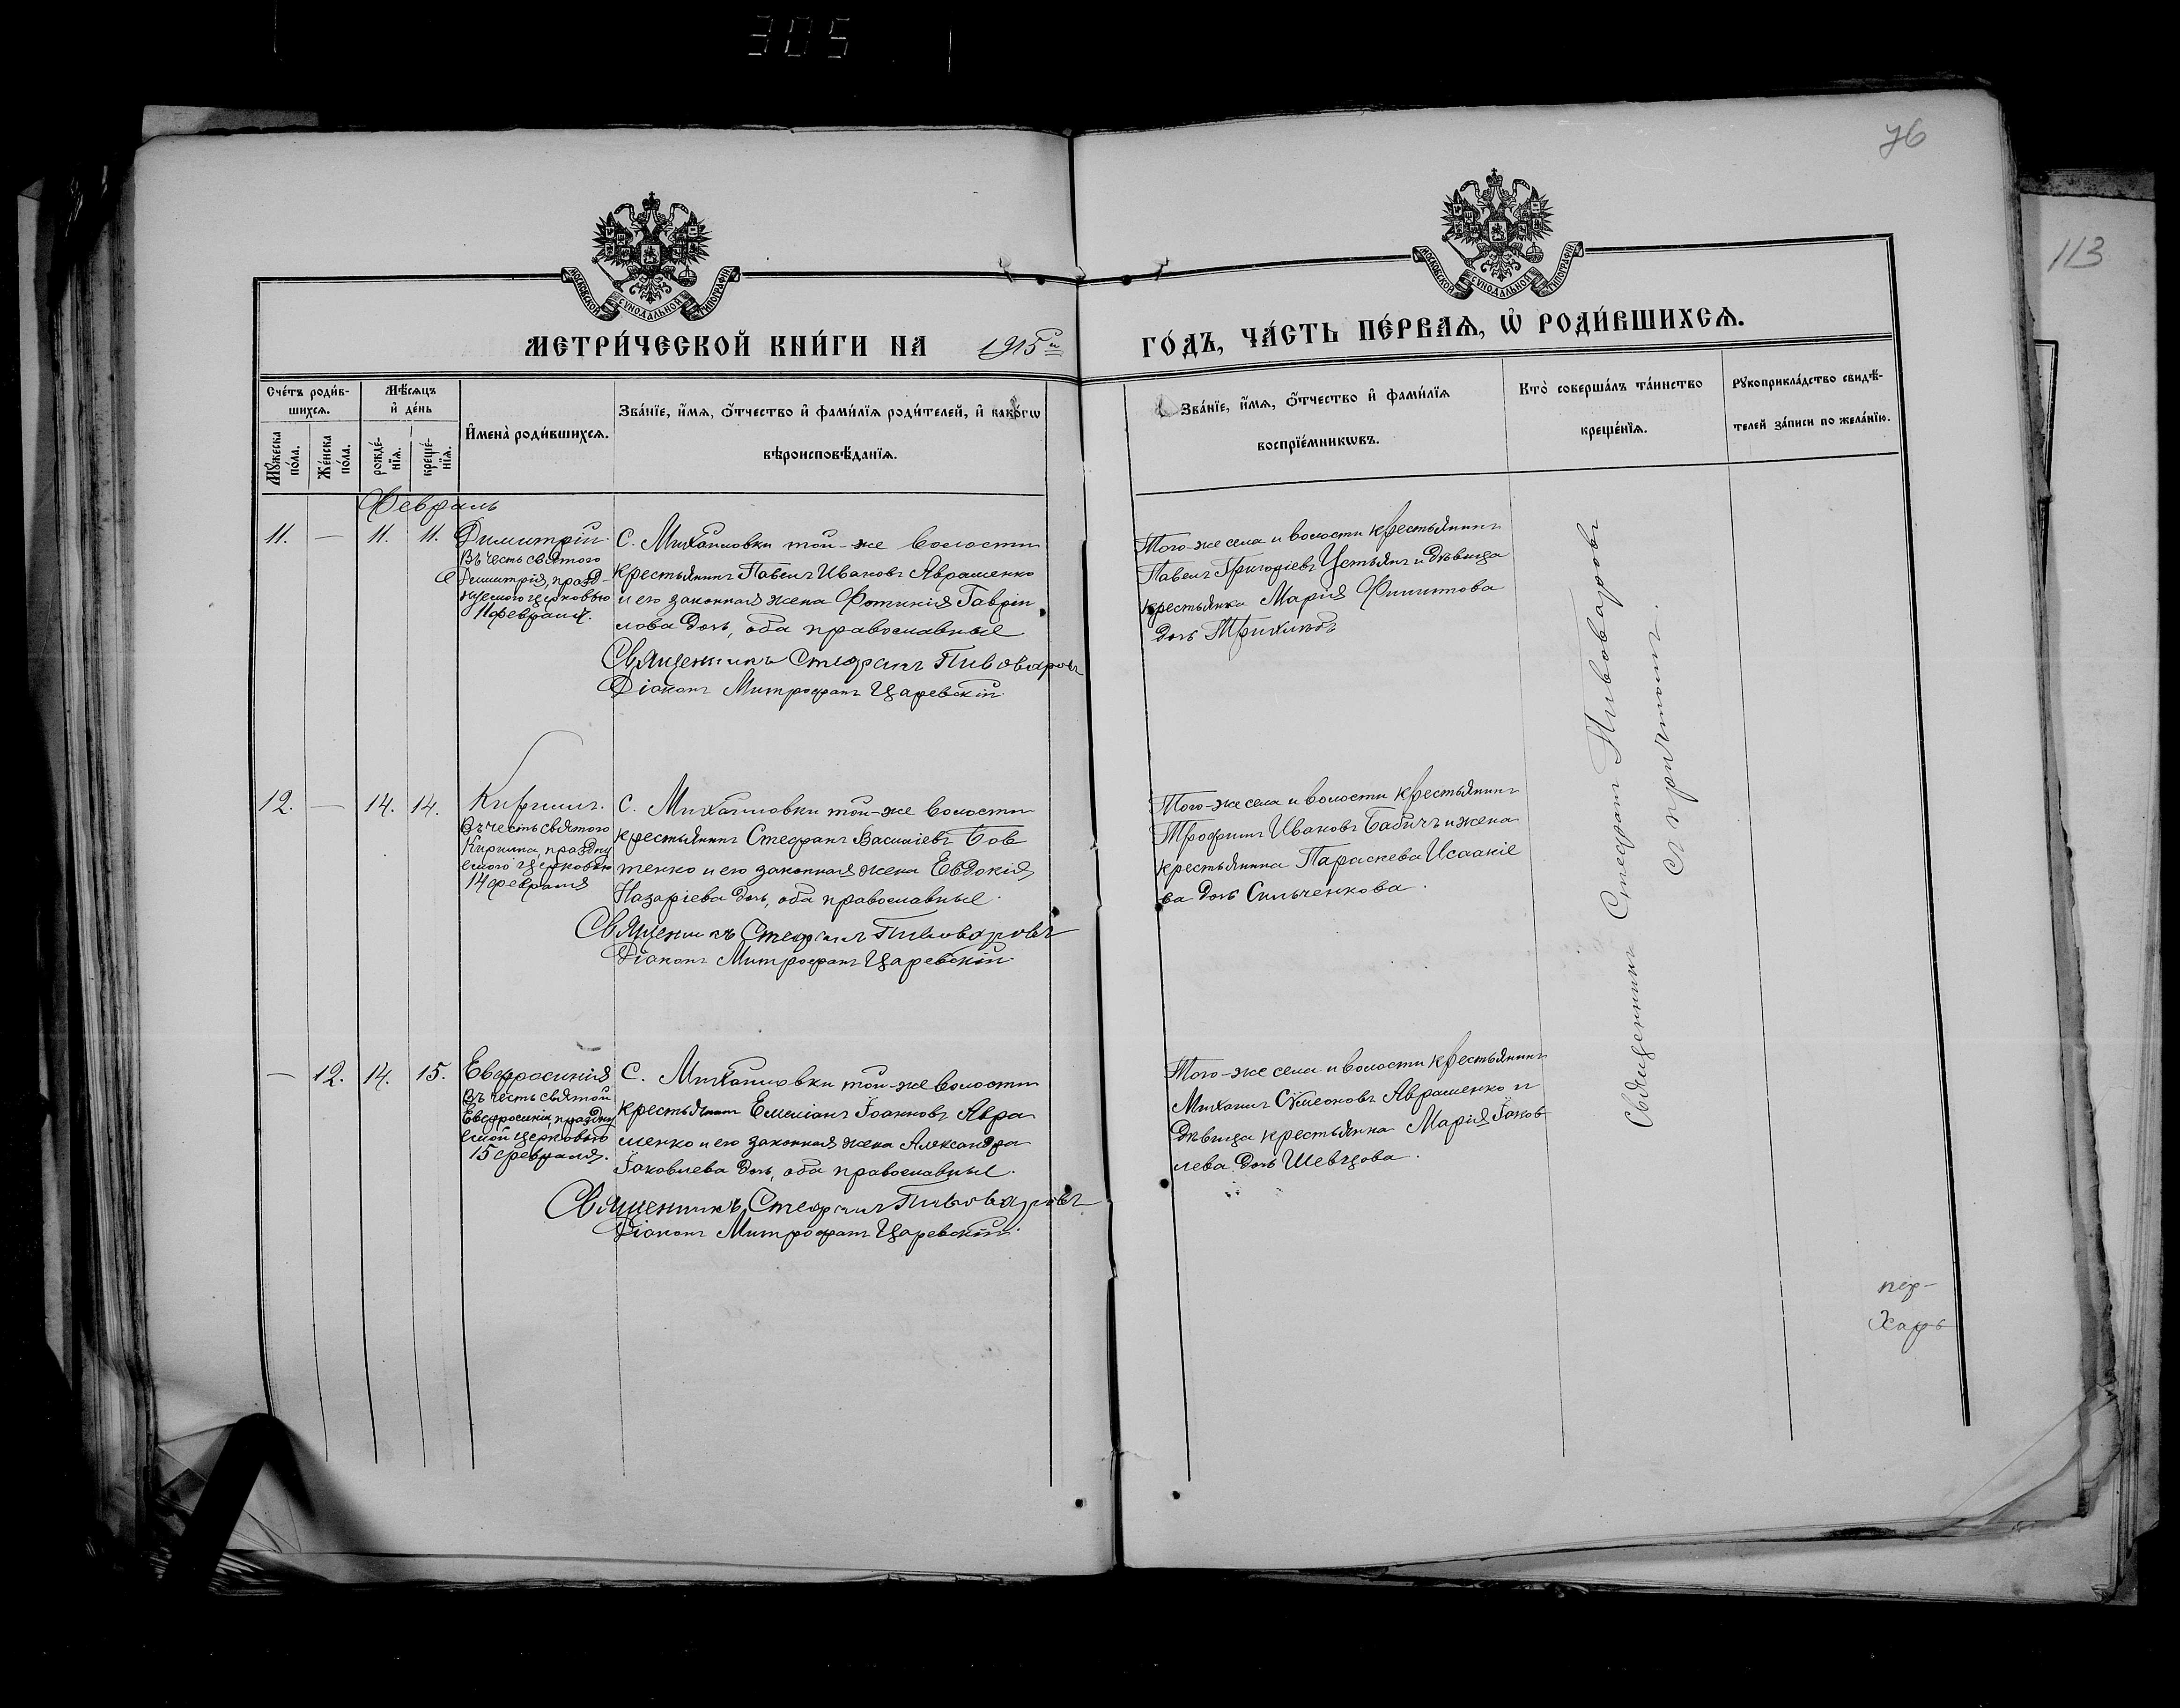 305
76
113
МОСКОВСКОЙ СѴНОДАЛЬНОЙ ТИПОГРАФІИ
МОСКОВСКОЙ СѴНОДАЛЬНОЙ ТИПОГРАФІИ
МЕТРИ́ЧЕСКОЙ КНИ́ГИ НА 1915й ГО́ДЪ, ЧА́СТЬ ПЕ́РВАѦ, Ѡ҆ РОДИ́ВШИХСѦ.
Сче́тъ роди́в-
шихсѧ.
Мꙋ́жеска
по́ла.
Же́нска
по́ла.
Мѣ́сѧцъ
и҆ де́нь
рожде́-
нїѧ.
креще́-
нїѧ.
И҆мена̀ роди́вшихсѧ.
Зва́нїе, и҆́мѧ, ѻ҆́тчество и҆ фами́лїѧ роди́телей, и҆ како́гѡ
вѣроисповѣ́данїѧ.
Зва́нїе, и҆́мѧ, ѻ҆́тчество и҆ фами́лїѧ
воспрїе́мникѡвъ.
Кто̀ соверша́лъ та́инство
креще́нїѧ.
Рꙋкоприкла́дство свидѣ́-
телей за́писи по жела́нїю.
Февраль
11. — 11. 11.
Димитрій.
Въ честь святого
Димитрія, празд-
нуемого церковью
11 февраля.
С. Михайловки той-же волости
крестьянинъ Павелъ Ивановъ Аврашенко
и его законная жена Фотинія Гаврій
лова дочь, оба православные
Священникъ Стефанъ Пивоваровъ
Діаконъ Митрофанъ Царевскій.
Того-же села и волости крестьянинъ
Павелъ Григоріевъ Устьянъ и дѣвица
крестьянка Марія Филиппова
дочь
12. — 14. 14.
Кириллъ.
Въ честь святого
Кирилла, праздну
емого церковью
14 февраля
С. Михайловки той-же волости
крестьянинъ Стефанъ Василіевъ Бов
тенко и его законная жена Евдокія
Назаріева дочь, оба православные.
Священникъ Стефанъ Пивоваровъ
Діаконъ Митрофанъ Царевскій.
Того-же села и волости крестьянинъ
Трофимъ Ивановъ Бабичъ и жена
крестьянина Параскева Исаакіе
ва дочь Сильченкова.
— 12. 14. 15.
Евфросинія
Въ честь святой
Евфросиніи, праздну
емой церковью
15 февраля.
С. Михайловки той-же волости
крестьянинъ Емеліанъ Іоанновъ Авра
менко и его законная жена Александра
Іаковлева дочь, оба православные.
Священникъ Стефанъ Пивоваровъ
Діаконъ Митрофанъ Царевскій.
Того-же села и волости крестьянинъ
Михаилъ Сѵмеоновъ Авраменко и
дѣвица крестьянка Марія Іаков
лева дочь Шевцова.
Священникъ Стефанъ Пивоваровъ
съ причтомъ.